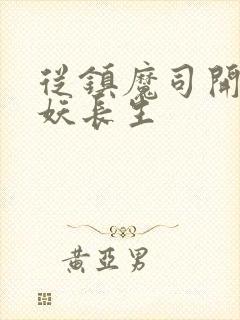 從鎮魔司開
妖長生
黃亞男